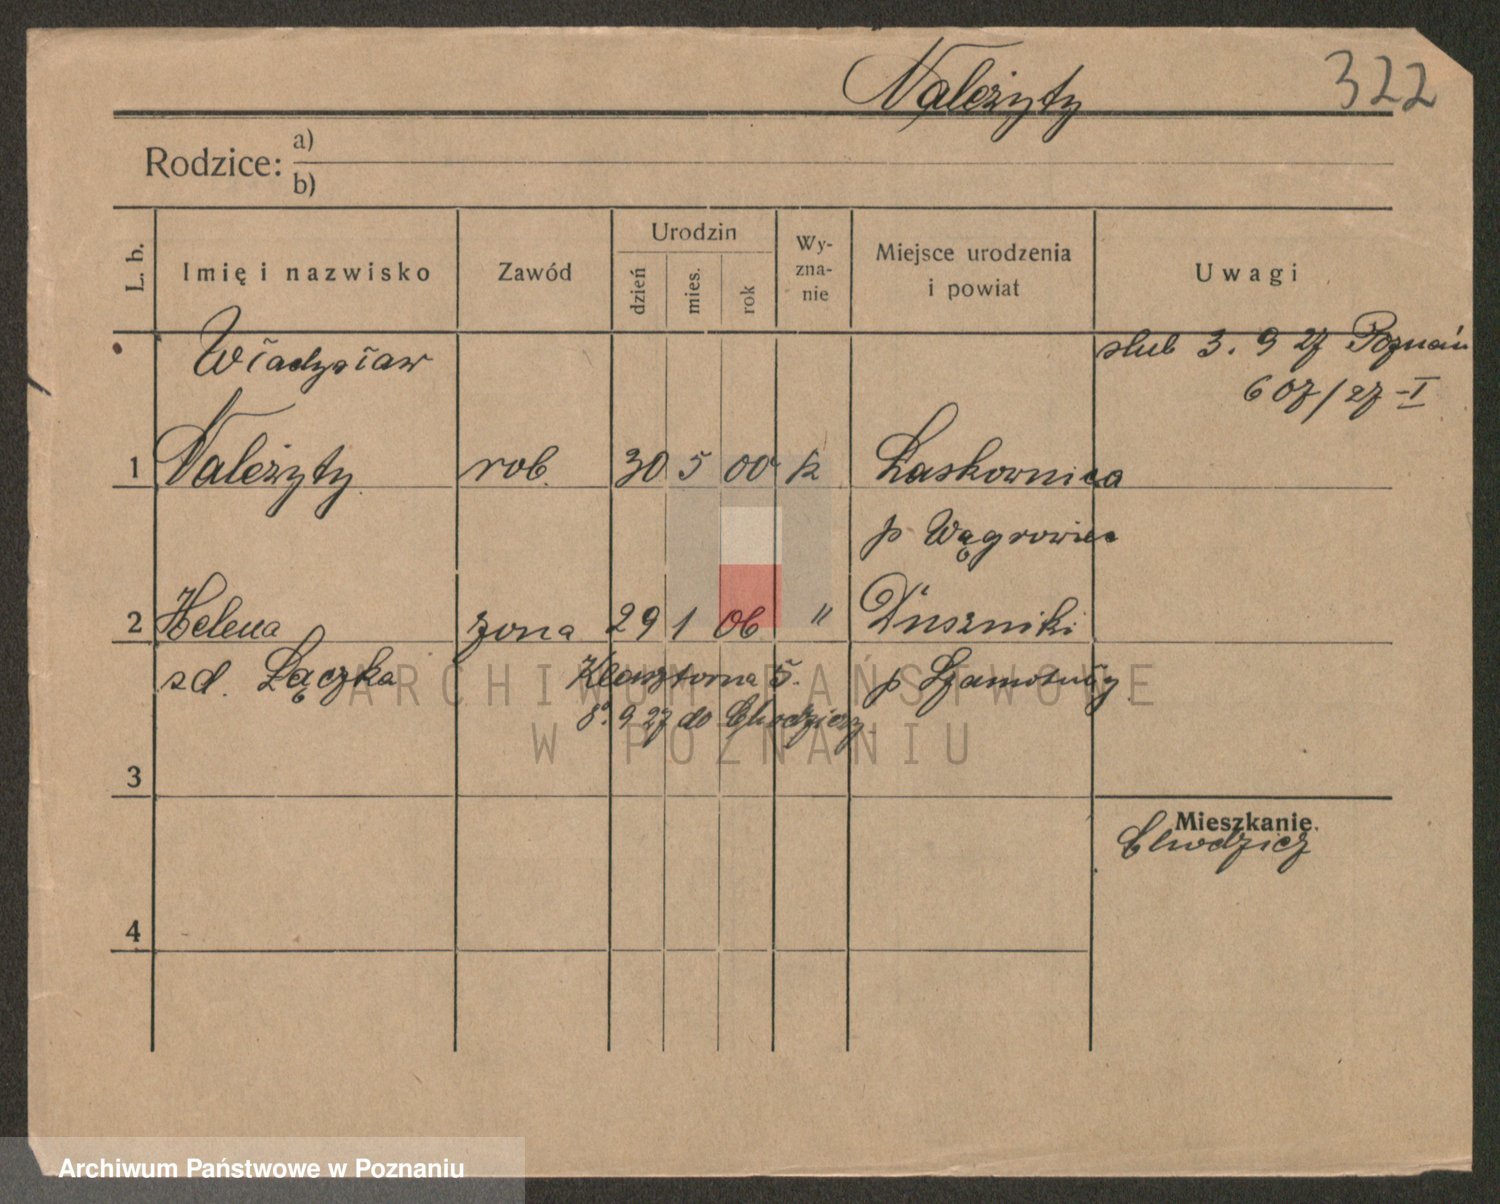 Należyty 322
Rodzice: a)
b)
L. b.
Imię i nazwisko
Zawód
Urodzin
dzień
mies.
rok
Wy-
zna-
nie
Miejsce urodzenia
i powiat
Uwagi
Władysław
ślub 3. 9 27 Poznań
607/27 -I
1 Należyty rob. 30 5 00 k Laskownica
p Wągrowiec
2 Helena żona 29 1 06 " Duszniki
zd. Łączka Klasztorna 5. p Szamotuły
8. 9 27 do Chodzieży
3
Mieszkanie.
Chodzież
4
ARCHIWUM PAŃSTWOWE
W POZNANIU
Archiwum Państwowe w Poznaniu